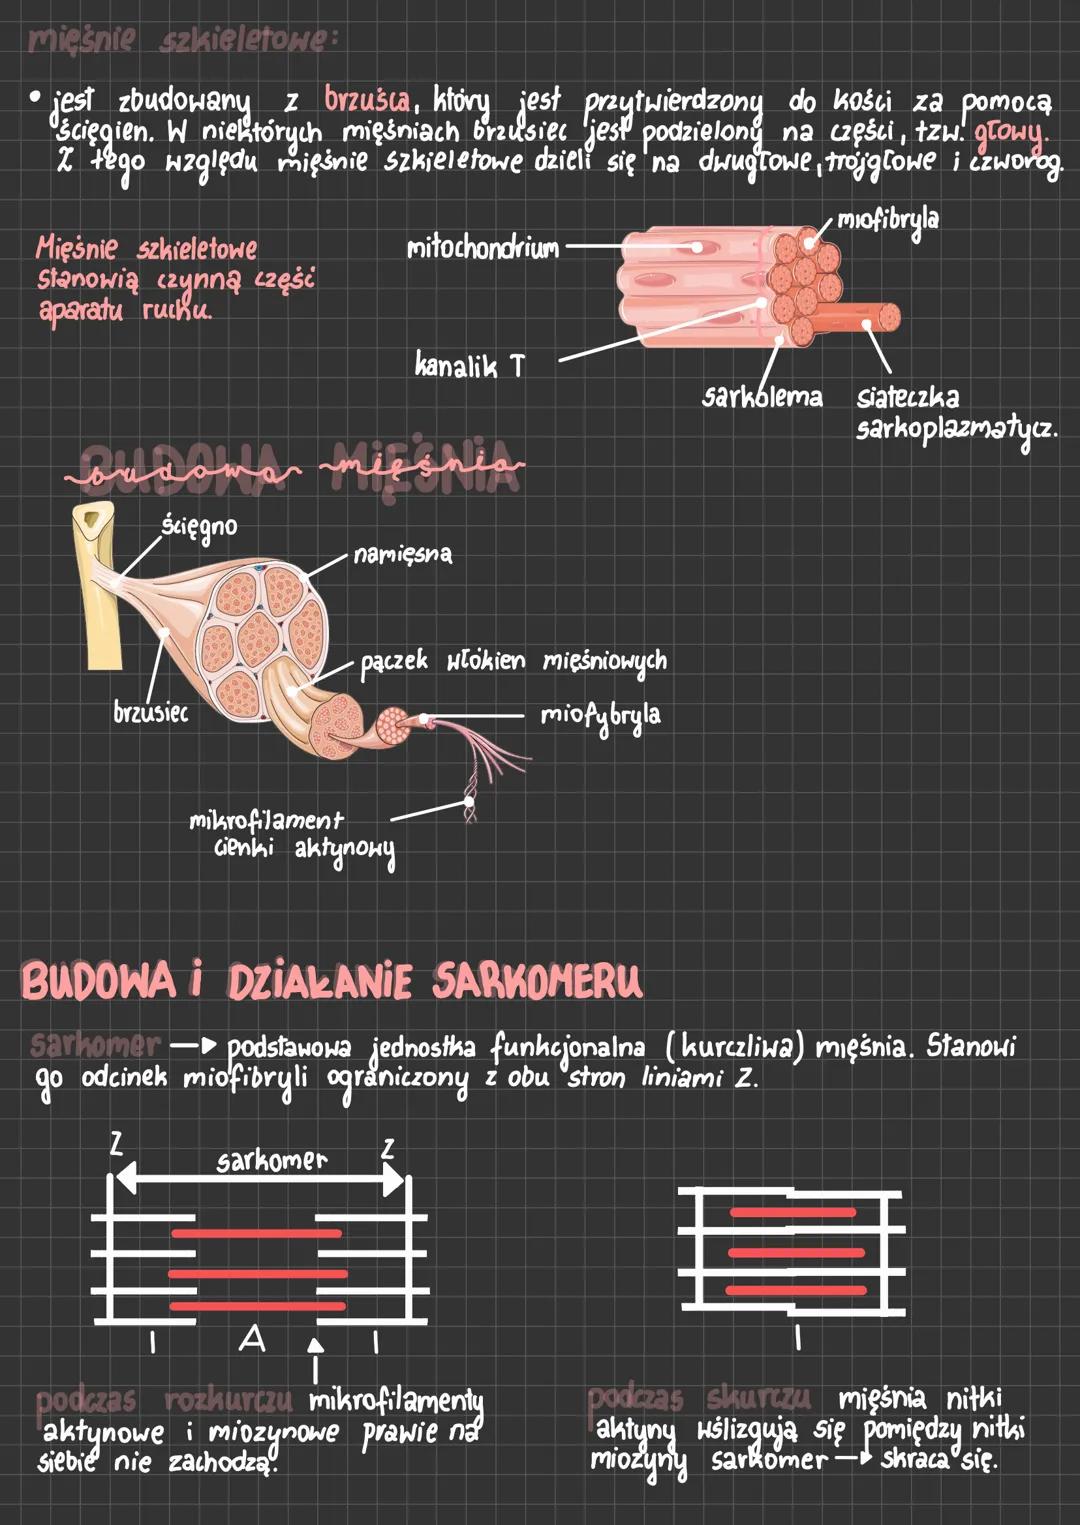 mięśnie szkieletowe:
• jest zbudowany z brzuśca, który jest przytwierdzony do kości za pomocą
ścięgien. W niektórych mięśniach brzusiec jest podzielony na części, tzw. głowy.
Z tego względu mięśnie szkieletowe dzieli się na dwugłowe, trójgłowe i czworog.
miofibryla
Mięśnie szkieletowe
stanowią czynną część
aparatu ruchu.
mitochondrium
kanalik T
sarkolema
siateczka
sarkoplazmatycz.
BUDOWA MIĘŚNIA
budowa mięśnia
ścięgno
namięsna
pączek włókien mięśniowych
brzusiec
miofybryla
mikrofilament
cienki aktynowy
BUDOWA i DZIAŁANIE SARKOMERU
sarkomer → podstawowa jednostka funkcjonalna (kurczliwa) mięśnia. Stanowi
go odcinek miofibryli ograniczony z obu stron liniami Z.
Z sarkomer Z
I A I
I
podczas rozkurczu mikrofilamenty
aktynowe i miozynowe prawie na
siebie nie zachodzą.
podczas skurczu mięśnia nitki
aktyny wślizgują się pomiędzy nitki
miozyny sarkomer → skraca się.